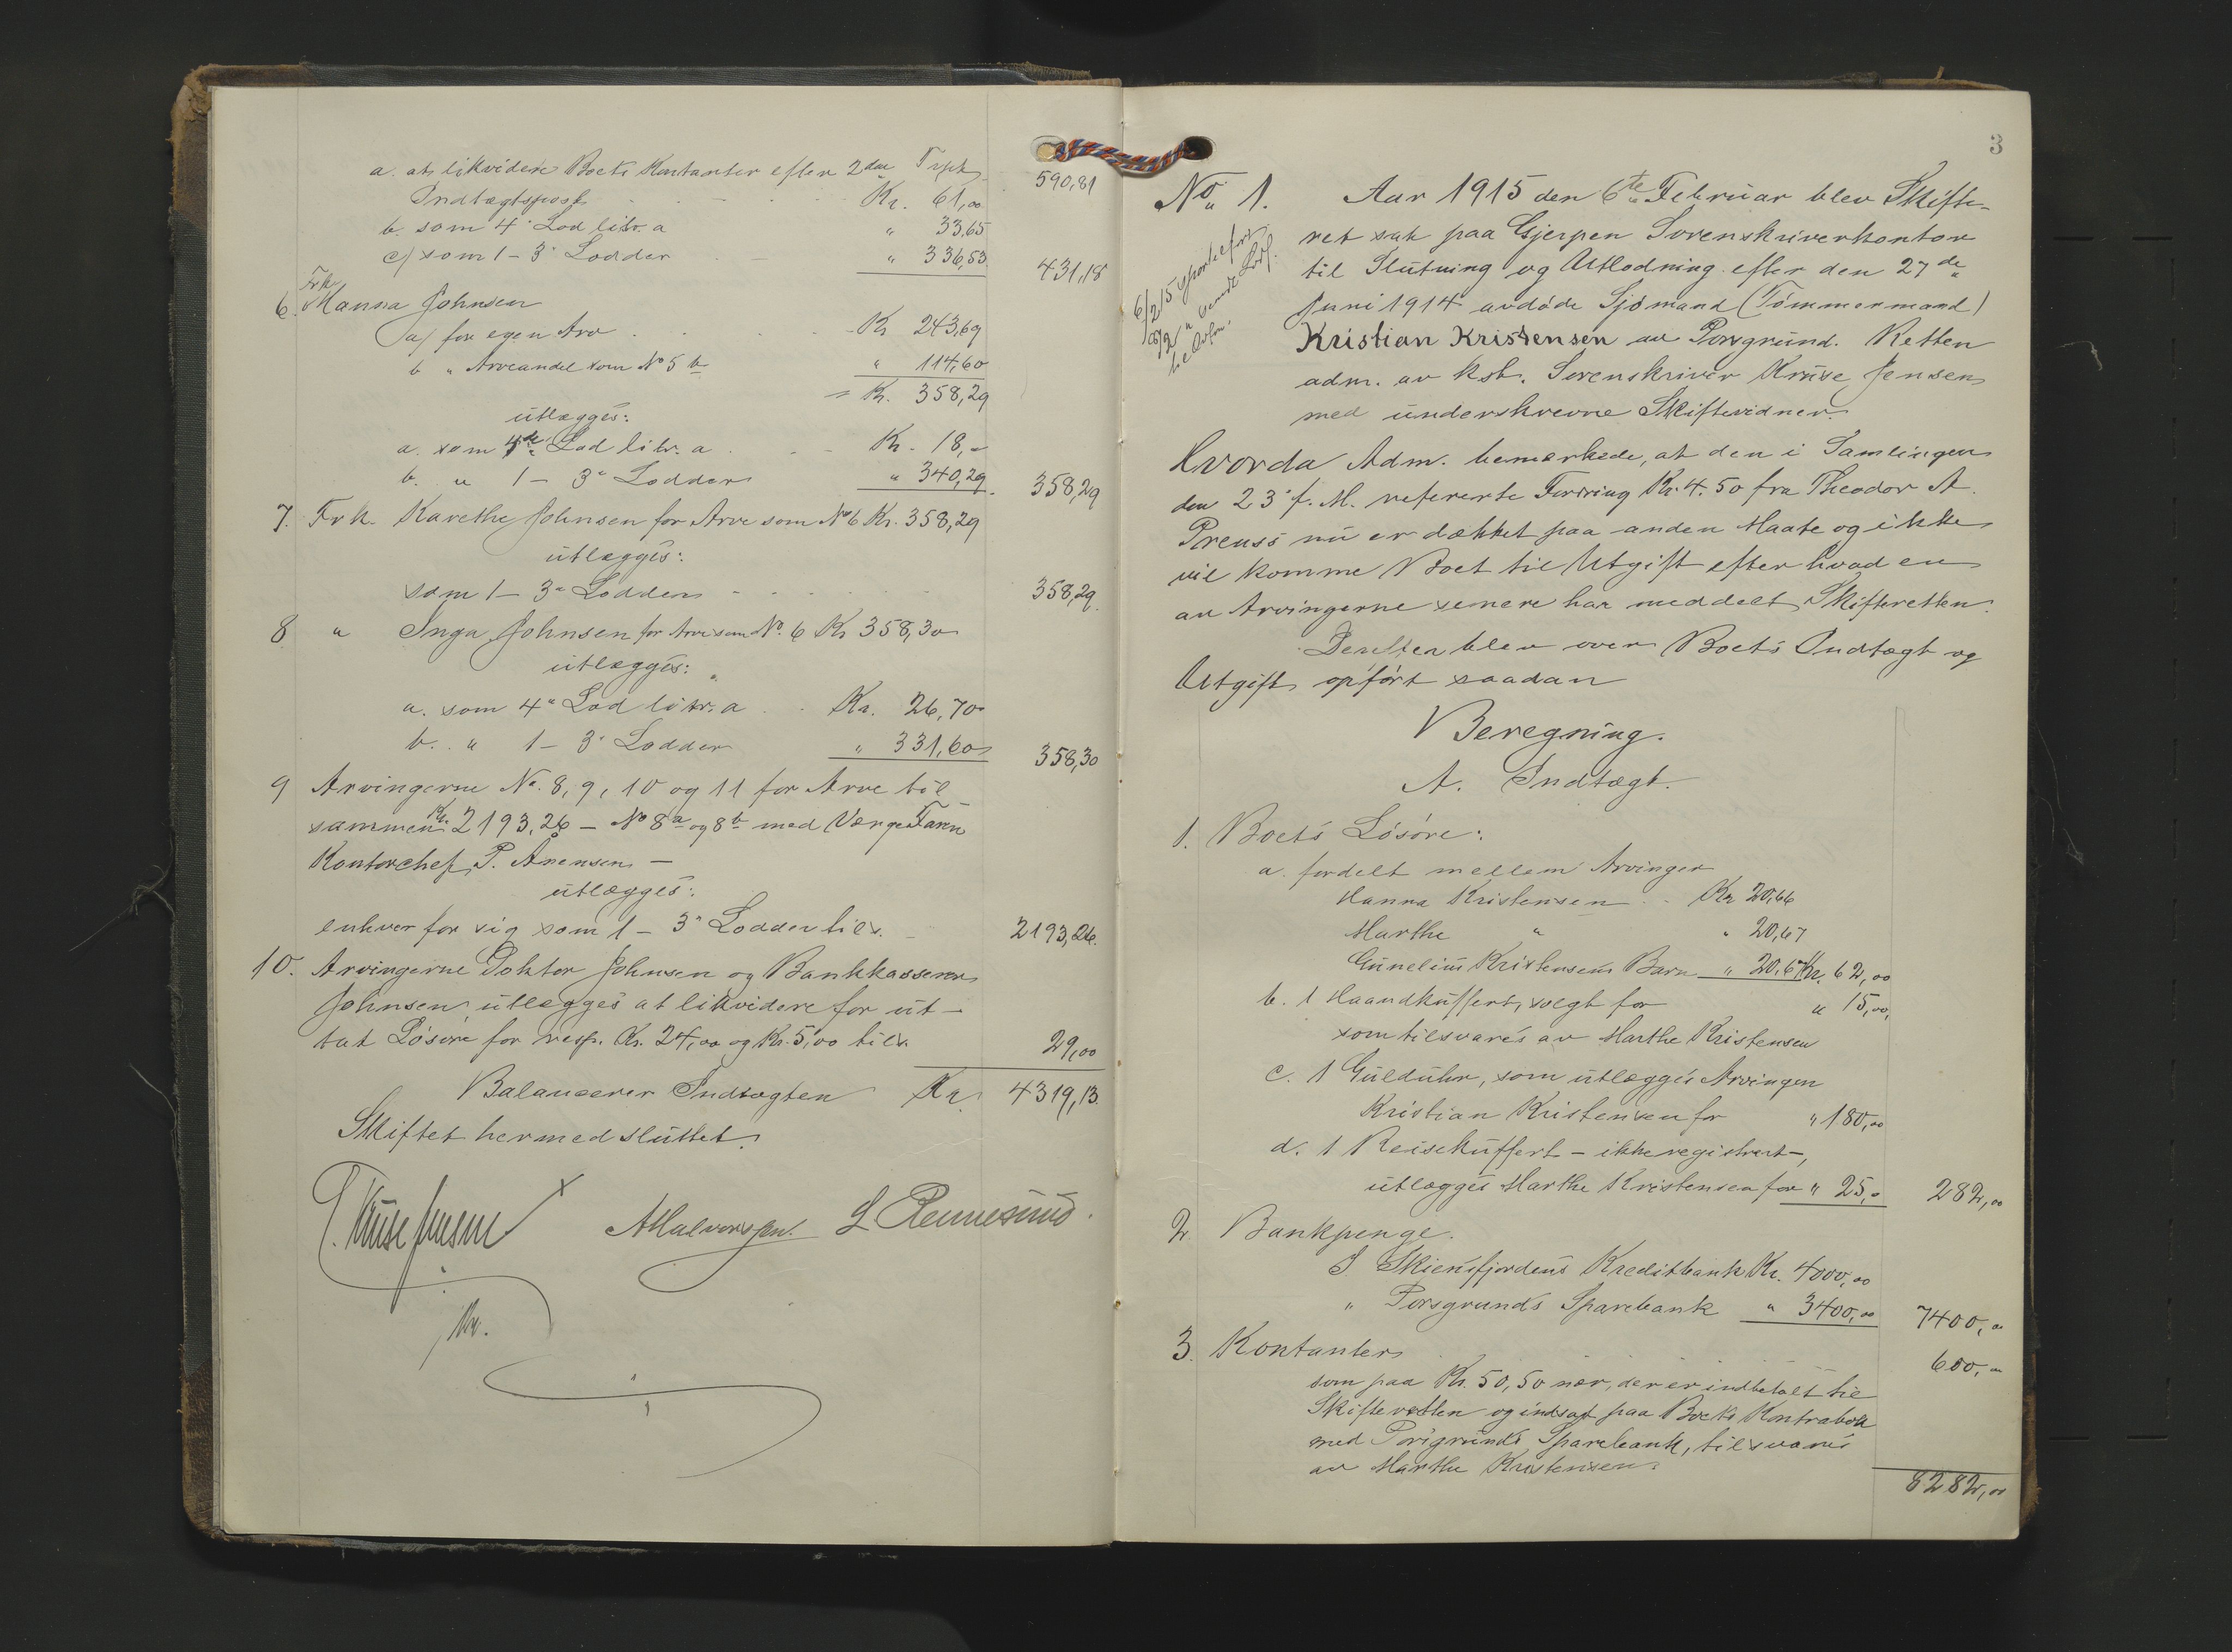 590,81
a. at likvidere Boets Kontanter efter 2den
Indtægtspost Kr. 61,00
b. som 4" Lod litr. a " 33,65
c/ som 1-3" Lodder " 336,53 431,18
Frk.
6. Hanna Johnsen
a/ for egen Arv Kr. 243,69
b " Arveandel som No 5 b " 114,60
= Kr. 358,29
utlægges:
a. som 4de Lod litr. a Kr. 18,-
b. " 1-3" Lodder " 340,29 358,29
7. Frk. Karethe Johnsen for Arv som No 6 Kr. 358,29
utlægges:
som 1-3" Lodder 358,29
8 " Inga Johnsen for Arv som No. 6 Kr 358,30
utlægges:
a. som 4" Lod litr. a Kr. 26,70
b. " 1-3" Lodder " 331,60 358,30
9 Arvingerne No. 8, 9, 10 og 11 for Arv til
sammen Kr. 2193,26 - No 8a og 8b med Værge
Kontorchef P. Anensen -
utlægges:
enhver for sig som 1-3" Lodder tils. 2193,26.
10. Arvingerne Doktor Johnsen og Bankkasserer
Johnsen utlægges at likvidere for ut-
tat Løsøre for resp. Kr. 24,00 og Kr. 5,00 tils. 29,00
Balancerer Indtægten Kr. 4319,13.
Skiftet hermed sluttet.
Kruse Jensen
3
No 1. Aar 1915 den 6te Februar blev Skifte-
ret sat paa Gjerpen Sorenskriverkontor
til Slutning og Utlodning efter den 27de
Juni 1914 avdøde Sjømand (Tømmermand)
Kristian Kristensen av Porsgrund. Retten
adm. av kst. Sorenskriver Kruse Jensen
med underskrevne Skiftevidner.
Hvorda Adm. bemerkede, at den i Samlingen
den 23' f. M. refererte Fordring Kr. 4.50 fra Theodor A.
Preuss nu er dækket paa anden Maate og ikke
vil komme Boet til Utgift efter hvad en
av Arvingerne senere har meddelt Skifteretten.
Derefter blev over Boets Indtægt og
Utgift opført saadan
Beregning.
A. Indtægt.
1. Boets Løsøre:
a. fordelt mellem Arvinger
Hanna Kristensen Kr 20,66
Marthe " " 20,67
Gunelius Kristensens Barn " 20,67 Kr. 62,00
b. 1 Haandkuffert, solgt for " 15,00,
som tilsvares av Marthe Kristensen
c. 1 Gulduhr, som utlægges Arvingen
Kristian Kristensen for " 180,00
d. 1 Reisekuffert - ikke registrert -,
utlægges Marthe Kristensen for " 25,- 282,00
2. Bankpenge.
I Skiensfjordens Kreditbank Kr. 4000,00
" Porsgrunds Sparebank " 3400,00 7400,00
3. Kontanter 600,-
som paa Kr. 50,50 nær, der er indbetalt til
Skifteretten og indsat paa Boets Kontrabok
med Porsgrunds Sparebank, tilsvares
av Marthe Kristensen.
8282,00